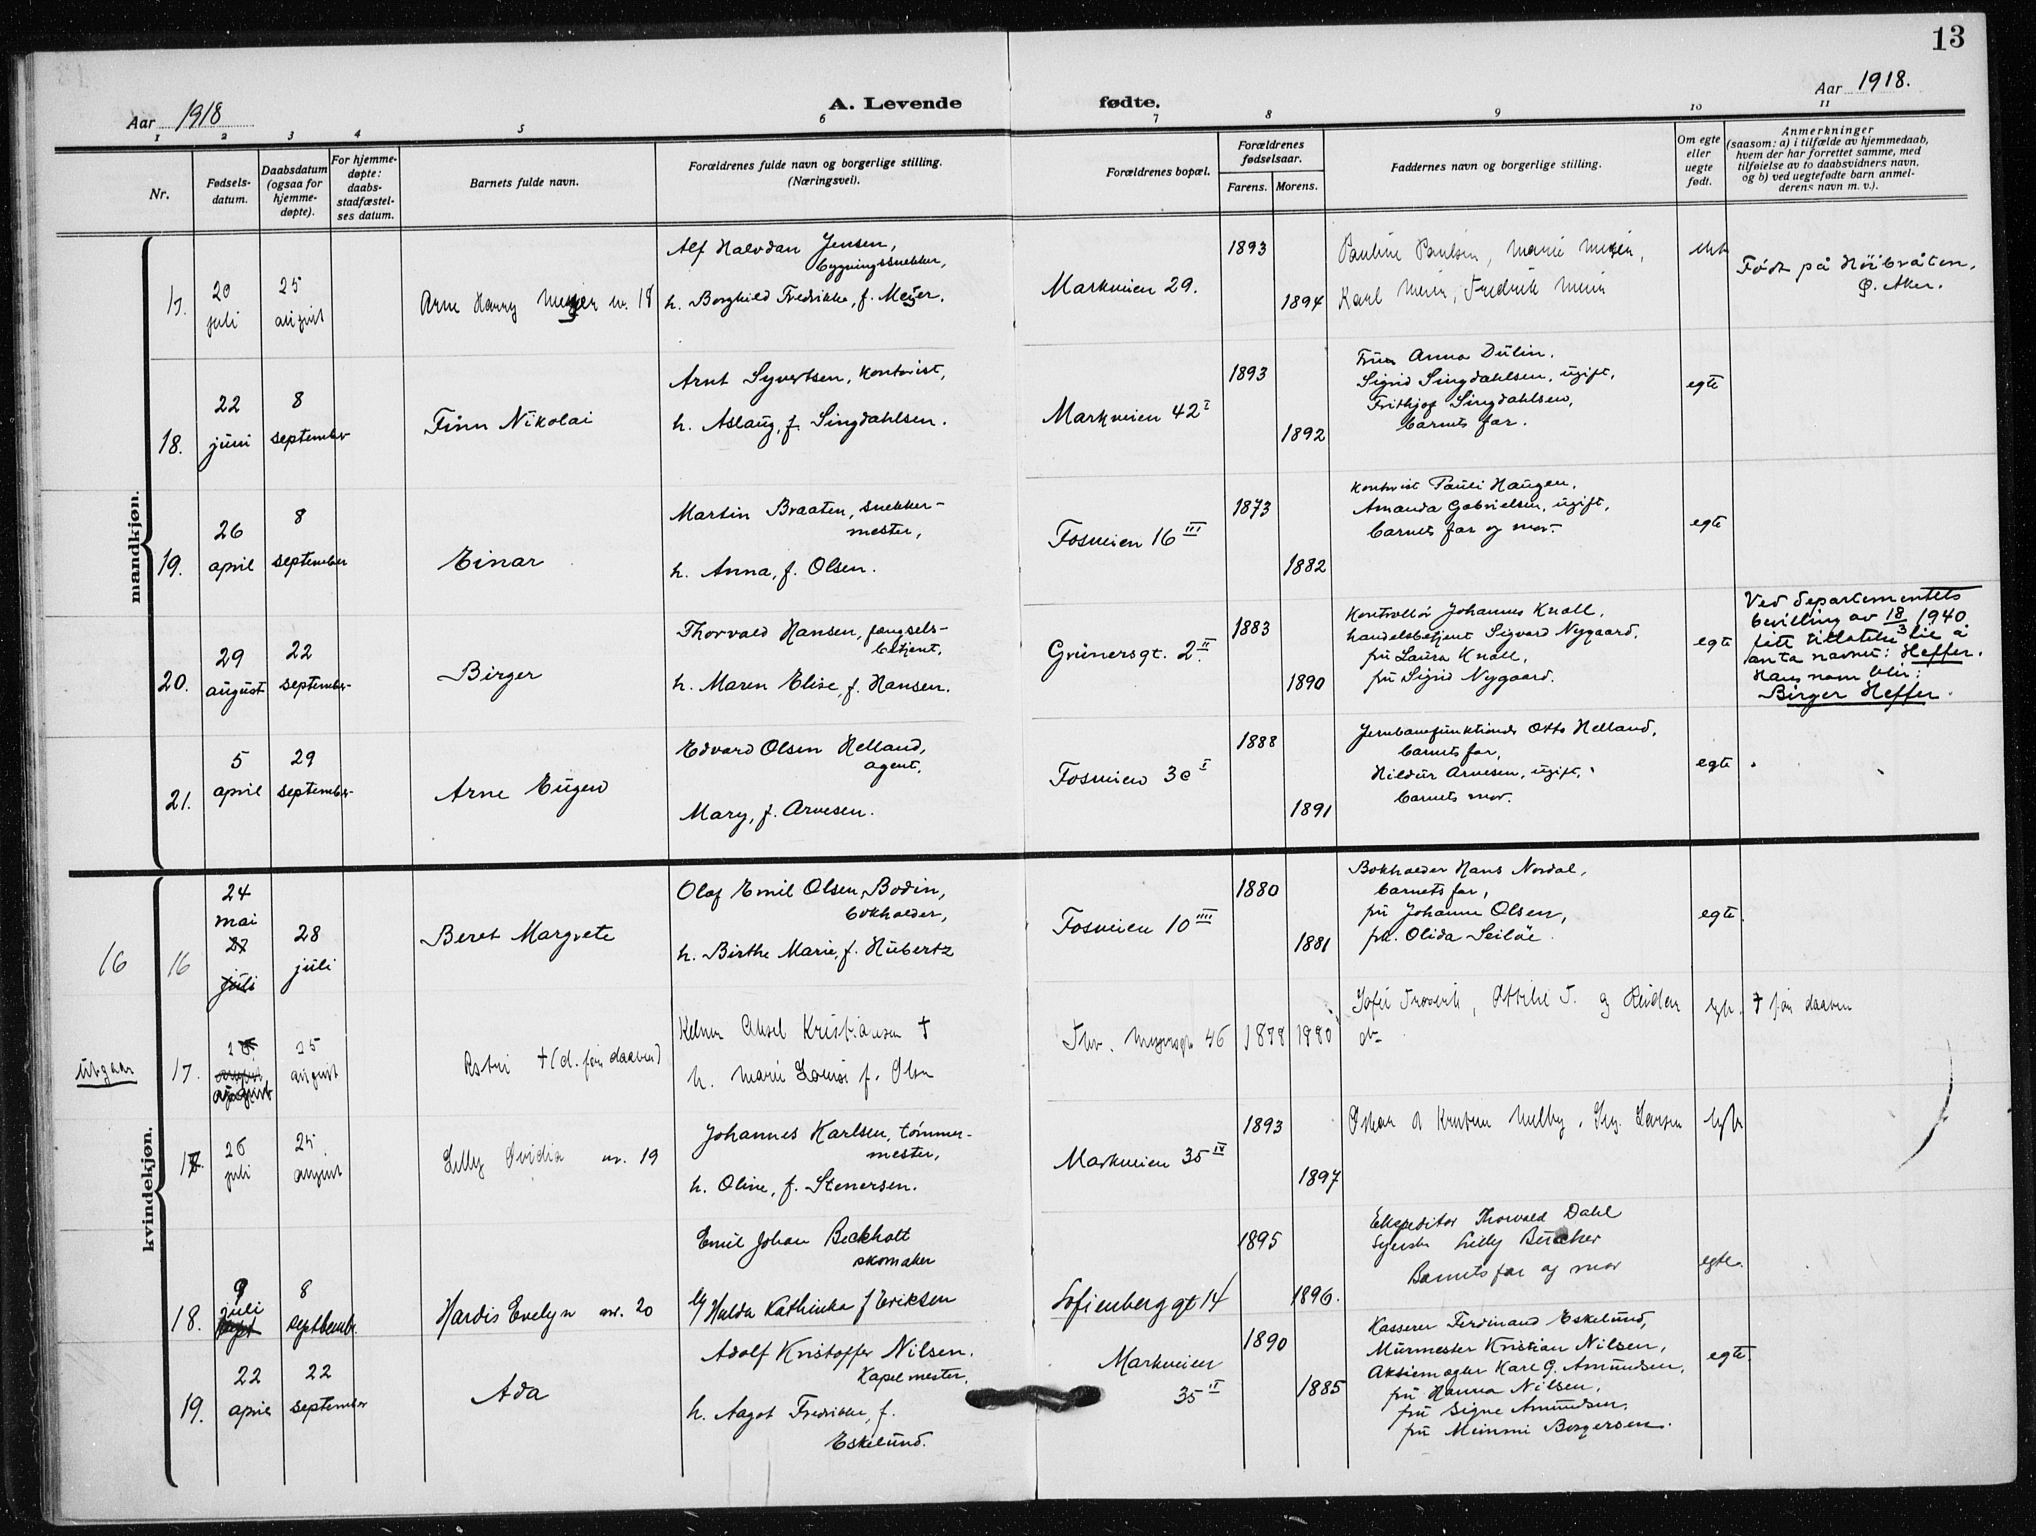 13
Aar 1918
A. Levende
fødte.
Aar 1918.
1 2 3 4 5 6 7 8 9 10 11
Nr.
Fødsels-
datum.
Daabsdatum
(ogsaa for
hjemme-
døpte).
For hjemme-
døpte:
daabs-
stadfæstel-
ses datum.
Barnets fulde navn.
Forældrenes fulde navn og borgerlige stilling.
(Næringsvei).
Forældrenes bopæl.
Forældrenes
fødselsaar.
Farens. Morens.
Faddernes navn og borgerlige stilling.
Om egte
eller
uegte
født.
Anmerkninger
(saasom: a) i tilfælde av hjemmedaab,
hvem der har forrettet samme, med
tilføielse av to daabsvidners navn,
og b) ved uegtefødte barn anmel-
derens navn m. v.).
mandkjøn.
17.
20
juli
25
august
Arne Harry Meyer nr. 18
Alf Halvdan Jensen,
bygningssnekker,
h. Borghild Fredrikke, f. Meyer.
Markveien 29.
1893
1894
Pauline Paulsen, Marie
Karl Fredrik
Født på Høibråten,
Ø. Aker.
18.
22
juni
8
september
Finn Nikolai
Arnt Syvertsen, kontorist,
h. Aslaug, f. Singdahlsen.
Markveien 42 I
1893
1892
Frue Anna Dulin.
Sigrid Singdahlsen, ugift,
Frithjof Singdahlsen,
barnets far.
egte
19.
26
april
8
september
Einar
Martin Braaten, snekker-
mester,
h. Anna, f. Olsen.
Fosveien 16 III
1873
1882
Kontorist Pauli Haugen,
Amanda Gabrielsen, ugift,
barnets far og mor.
egte
20.
29
august
22
september
Birger
Thorvald Hansen, fængsels-
betjent,
h. Maren Elise, f. Hansen.
Grünersgt. 2 II
1883
1890
Kontrollør Johannes Knoll,
handelsbetjent Sigvard Nygaard,
fru Laura Knoll,
fru Sigrid Nygaard.
egte
Ved Departementets
bevilling av 18/3 1940
fått tillatelse til å
anta navnet: Heffer.
Hans navn blir:
Birger Heffer.
21.
5
april
29
september
Arne Eugen
Edvard Olsen Helland,
agent,
Mary, f. Arvesen.
Fosveien 3c I
1888
1891
Jernbanefunktionær Otto Helland,
barnets far,
Hildur Arvesen, ugift,
barnets mor.
egte
kvindekjøn.
16
16
24
mai
27
juli
28
juli
Beret Margrete
Olaf Emil Olsen Bodin,
bokholder,
h. Birthe Marie, f. Hubertz
Fosveien 10 IIII
1880
1881
Bokholder Hans Nordal,
barnets far,
fru Johanne Olsen,
frk. Olida Seiløe.
egte.
utgaar
17.
august
august
25
august
Astri † (d. før daaben)
Kelner Aksel Kristiansen †
h. Marie Lovise f. Olsen
Thv. Meyersgt 46
1878
1880
† før daaben
17.
26
juli
25.
august
Lilly Ovidia nr. 19
Johannes Karlsen, tømmer-
mester,
h. Oline, f. Stenersen.
Markveien 35 IV
1893
1897
Oskar Larsen
18.
9
juli
8
septbembr.
Hardis Evelyn nr. 20
Emil Johan Beckholt
skomaker
Hulda Kathinka f Eriksen
Sofienberg gt 14
1895
1896.
Ekspeditør Thorvald Dahl
Syerske Lilly Bücher
Barnets far og mor
egte.
19.
22
april
22
september
Ada
Adolf Kristoffer Nilsen.
Kapelmester,
h. Aagot Fredrikke, f.
Eskelund.
Markveien
35 II
1890
1885
Kasserer Ferdinand Eskelund,
Murmester Kristian Nilsen,
Aktiemægler Karl G. Amundsen,
fru Hanna Nilsen,
fru Signe Amundsen,
fru Mimmi Borgersen.
egte.